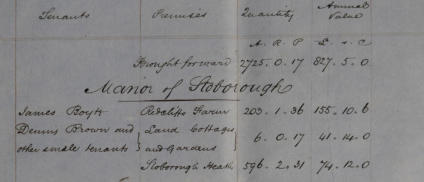 Tenants Premises Quantity Annual Value
A. R. P. £. s. d
Brought forward 2725. 0. 17 827. 5. 0
Manor of Stoborough
James Boyt Redcliffe Farm 203. 1. 36 155. 10. 6
Dennis Brown and } Land Cottages
other small tenants } and Gardens 6. 0. 17 41. 14. 0
Stoborough Heath 596. 2. 31 74. 12. 0